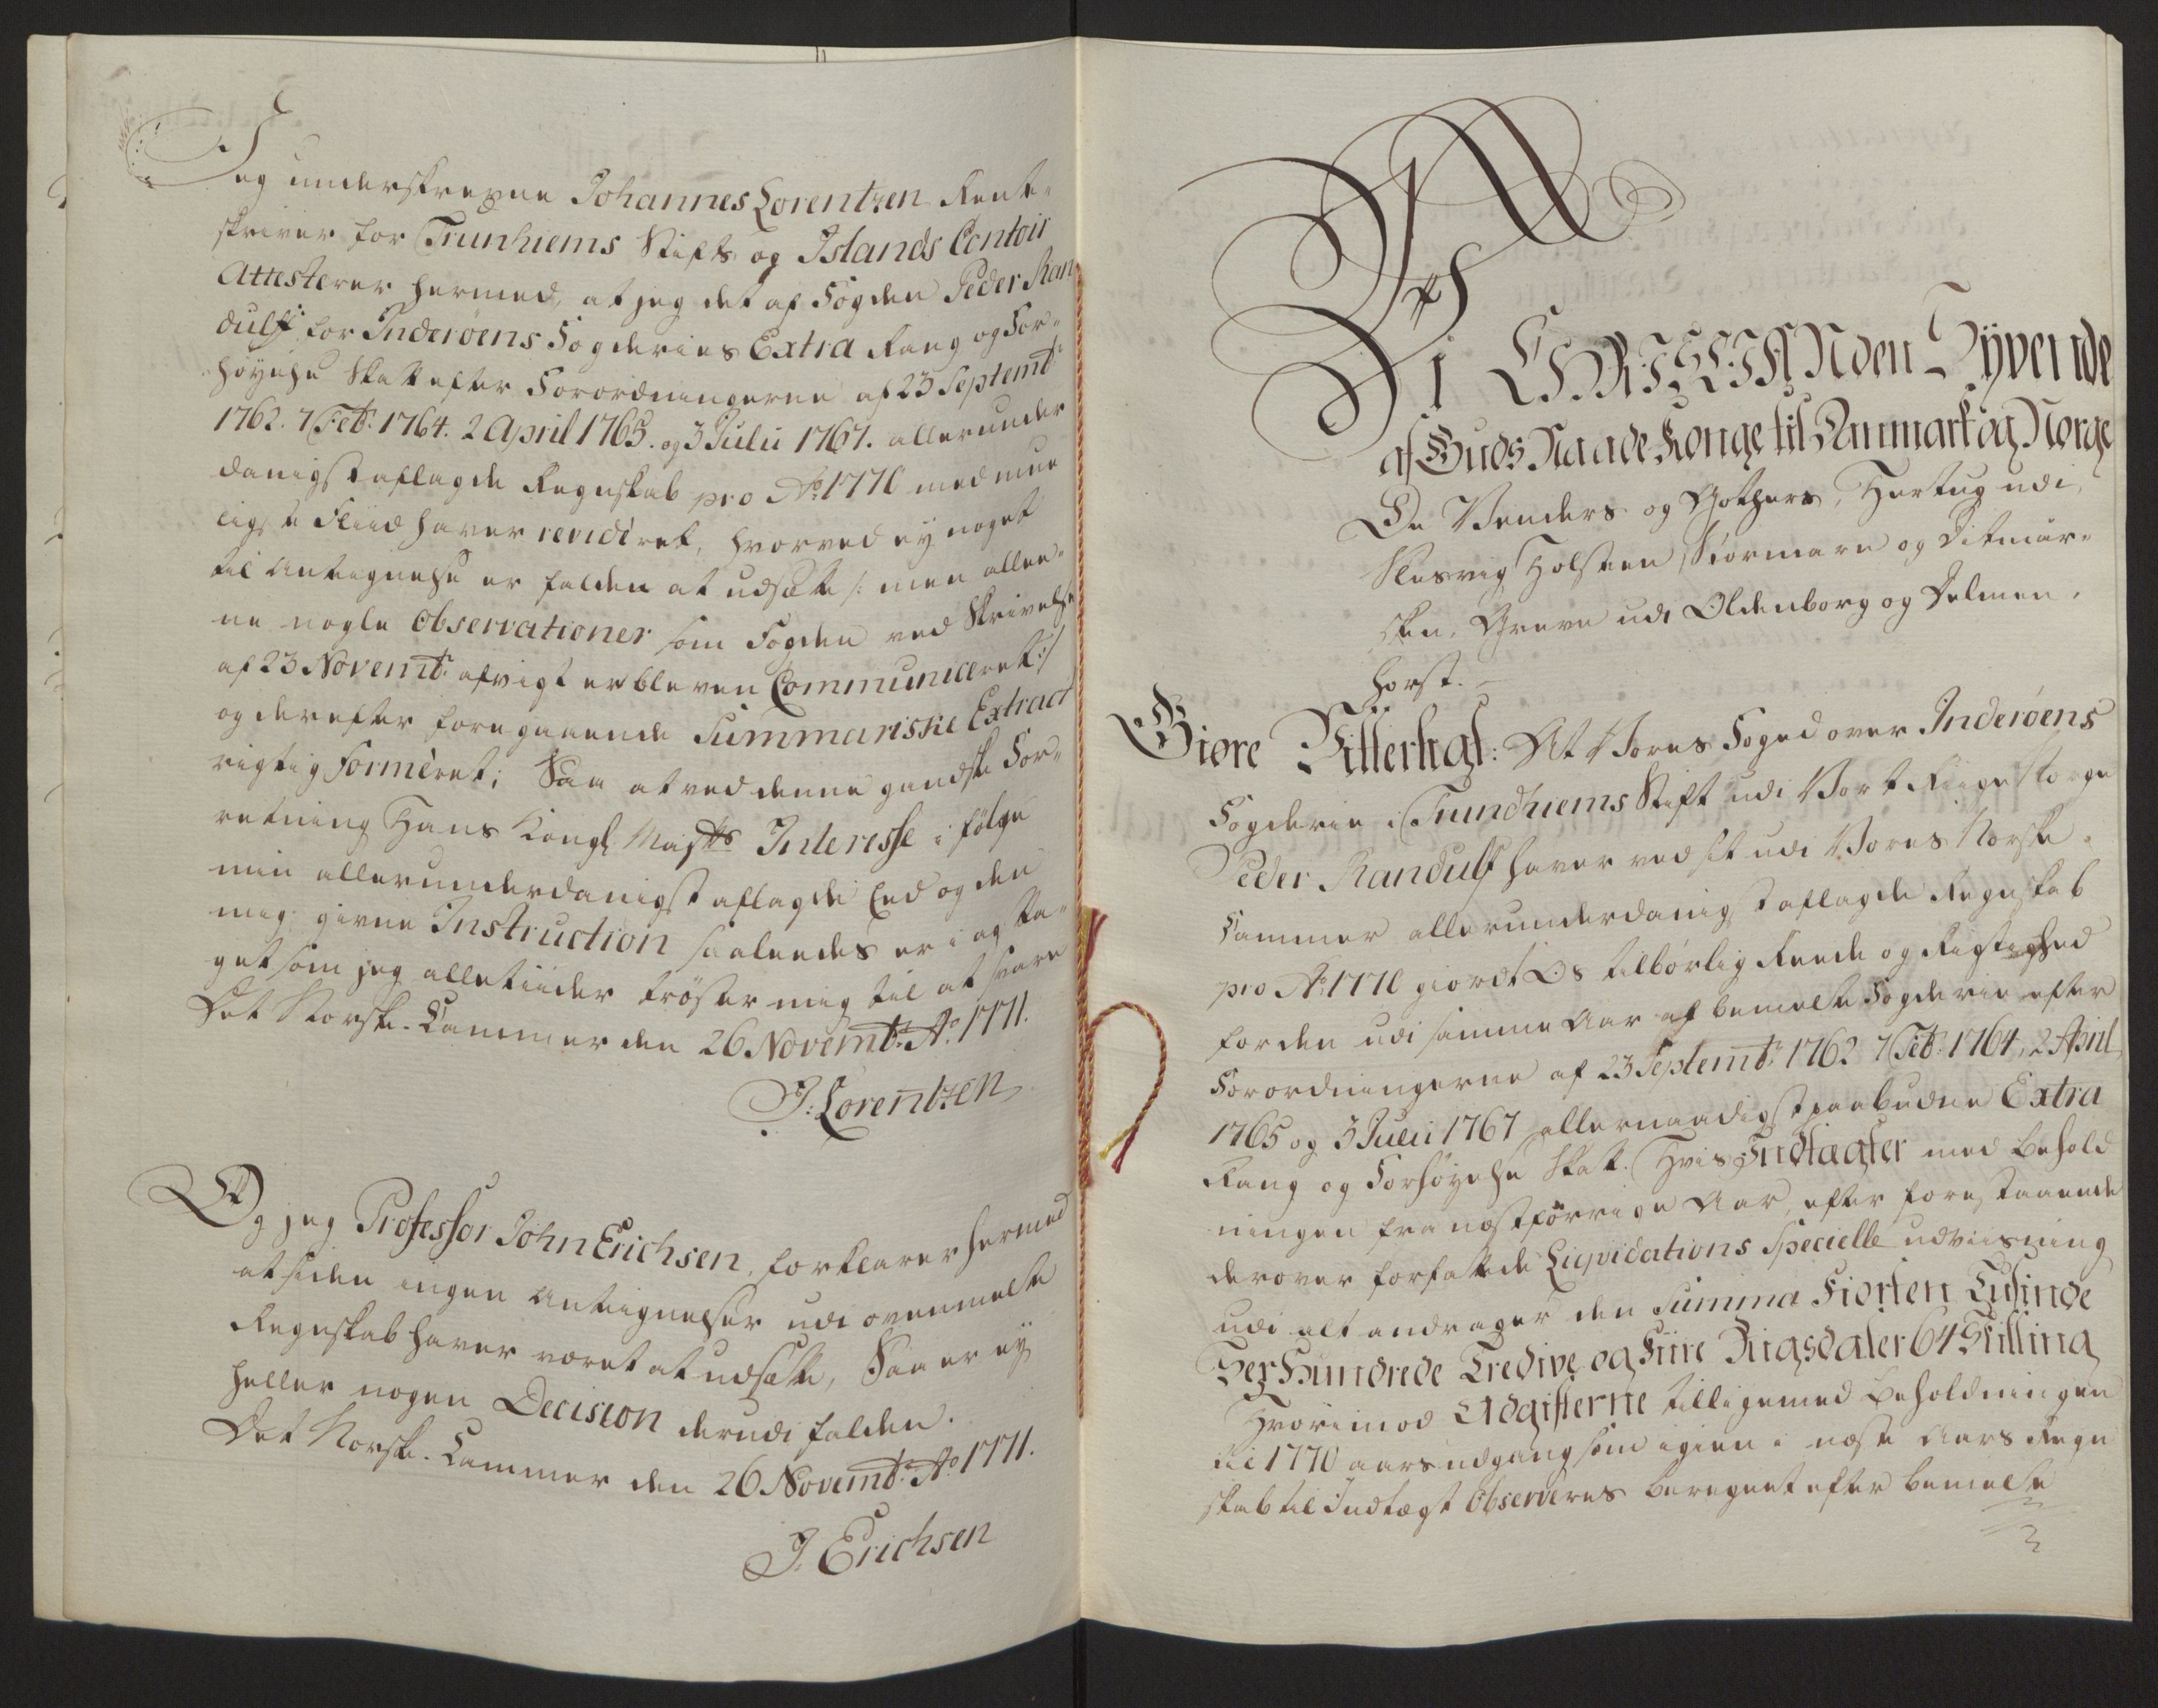 Jeg underskrevne Johannes Lorentzen Rente-
skriver for Trunhiems Stifts og Islands Contoir
Attesterer hermed, at jeg det af Fogden Peder Ran
dulff for Inderøens Fogderies Extra Rang og For-
høyelse Skatt efter Forordningerne af 23 Septembr
1762. 7 Febr: 1764. 2 April 1765. og 3 Julii 1767. allerunder
danigst aflagde Regnskab pro Ao 1770 med mue
ligste Fliid haver revideret, hvorved ey noget
til Antegnelse er falden at udsætte /: men allee-
ne nogle Observationer som Fogden ved Skrivelse
af 23 Novembr: afvigt er bleven Communiceret :/
og derefter foregaaende Summariske Extract
rigtig Formeret; Saa at ved denne gandske For-
retning Hans Kongl. Majts Interesse i følge
min allerunderdanigst aflagde Eed og den
mig givne Instruction saaleedes er i agt ta-
get som jeg alletiider trøster mig til at svare
Det Norske Cammer den 26 Novembr: Ao 1771.
J: Lorentzen
Og jeg Professor John Erichsen, forklarer hermed
at siden ingen Antegnelser udi ovenmelte
Regnskab haver været at udsætte, Saa er ey
heller nogen Decision derudi falden.
Det Norske Cammer den 26 Novembr: Ao 1771.
J. Erichsen
Vi CHRISTIAN den Syvende
af Guds Naade Konge til Danmark og Norge
De Venders og Gothers, Hertug udi
Slesvig Holsten Stormarn og Ditmar-
sken, Greve udi Oldenborg og Delmen-
horst.
Giøre Vitterligt: At Vores Foged over Inderøens
Fogderie i Trundhiems Stift udi Vort Riige Norge
Peder Randulff haver ved sit udi Vores Norske
Cammer allerunderdanigst aflagde Regnskab
pro Ao 1770 giordt Os tilbørlig Reede og Rigtighed
for den udi samme Aar af bemelte Fogderie efter
Forordningerne af 23 Septembr: 1762 7 Feb: 1764, 2 April
1765 og 3 Julii 1767 allernaadigst paabudne Extra
Rang og Forhøyelse Skatt. Hvis Indtægter med Behold
ningen fra næstforrige Aar, efter forestaaende
derover forfattede Liqvidations Specielle udviisning
udi alt andrager den Summa Fiorten Tusinde
Sex Hundrede Tredive og Fiire Rigsdaler 64 Skilling
Hvorimod Udgifterne tilligemed Beholdningen
til 1770 aars udgang som igien i næste Aars Regn
skab til Indtægt Observeres beregnet efter bemelte